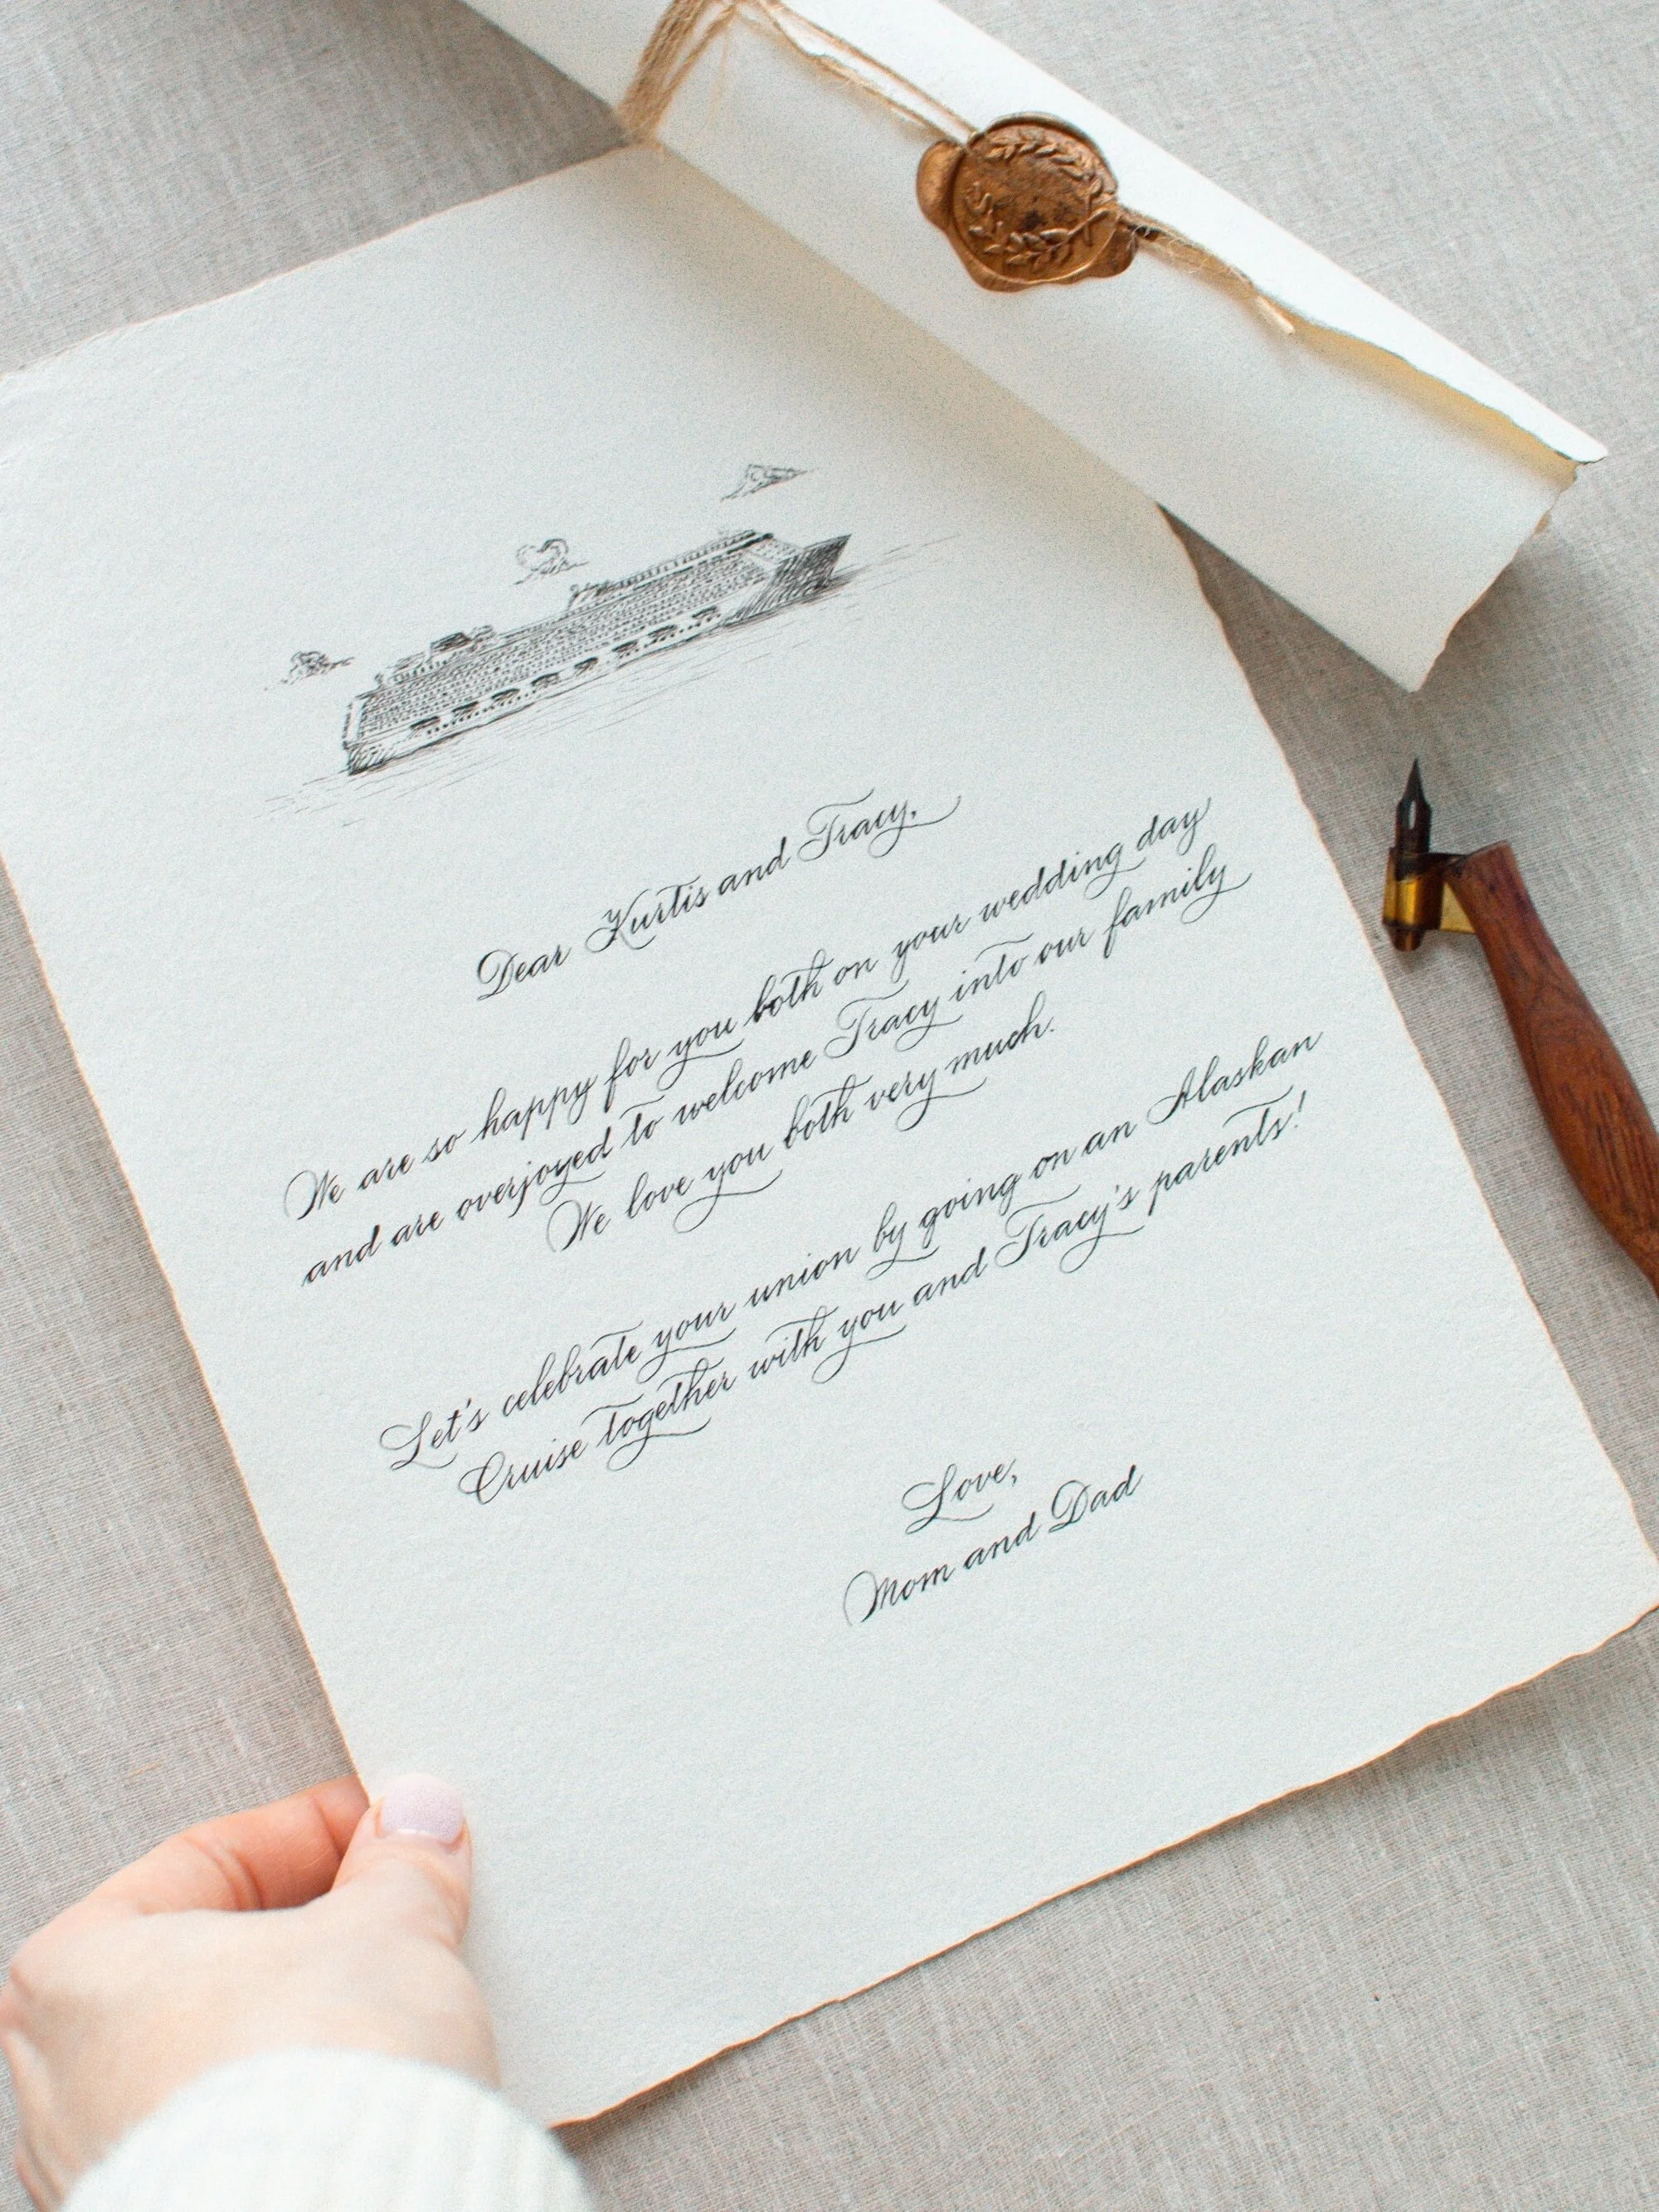 Dear Kurtis and Tracy,
We are so happy for you both on your wedding day
and are overjoyed to welcome Tracy into our family
We love you both very much.
Let's celebrate your union by going on an Alaskan
Cruise together with you and Tracy's parents!
Love,
Mom and Dad